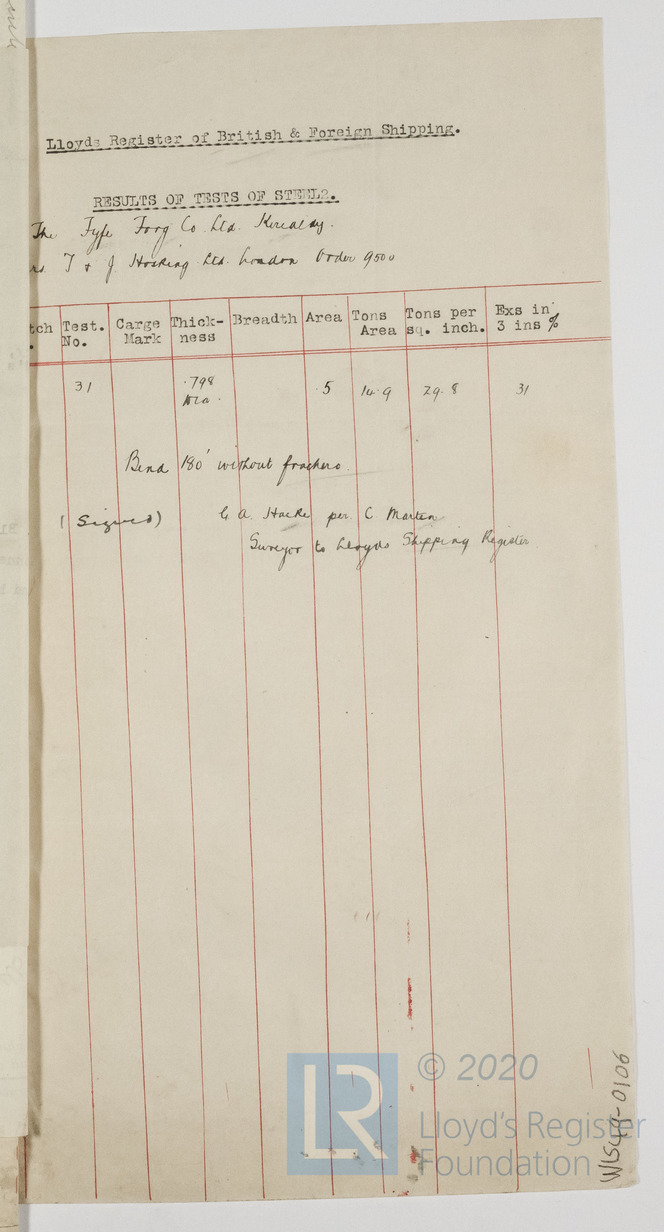 Lloyds Register of British & Foreign Shipping.
RESULTS OF TESTS OF STEELS.
The Fyfe Forg Co. Ltd. Kircaldy.
rs. T & J Hosking Ltd. London Order 9500
tch Test. No. Carge Mark Thick-ness Breadth Area Tons Area Tons per sq. inch. Exs in 3 ins %
31 .798 Dia. .5 14.9 29.8 31
Bend 180° without fracture.
(Signed) G. A. Hacke per C Marten
Surveyor to Lloyds Shipping Register
© 2020
LR Lloyd's Register
Foundation
W1548-0106